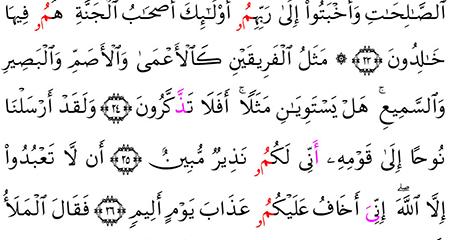 ٱلصَّٰلِحَٰتِ وَأَخْبَتُوٓا۟ إِلَىٰ رَبِّهِمُۥ أُو۟لَٰٓئِكَ أَصْحَٰبُ ٱلْجَنَّةِ هُمُۥ فِيهَا
خَٰلِدُونَ ﴿٢٣﴾ ۞ مَثَلُ ٱلْفَرِيقَيْنِ كَٱلْأَعْمَىٰ وَٱلْأَصَمِّ وَٱلْبَصِيرِ
وَٱلسَّمِيعِ ۚ هَلْ يَسْتَوِيَانِ مَثَلًا ۚ أَفَلَا تَذَّكَّرُونَ ﴿٢٤﴾ وَلَقَدْ أَرْسَلْنَا
نُوحًا إِلَىٰ قَوْمِهِۦٓ أَنِّى لَكُمُۥ نَذِيرٌ مُّبِينٌ ﴿٢٥﴾ أَن لَّا تَعْبُدُوٓا۟
إِلَّا ٱللَّهَ ۖ إِنِّىَ أَخَافُ عَلَيْكُمُۥ عَذَابَ يَوْمٍ أَلِيمٍ ﴿٢٦﴾ فَقَالَ ٱلْمَلَأُ